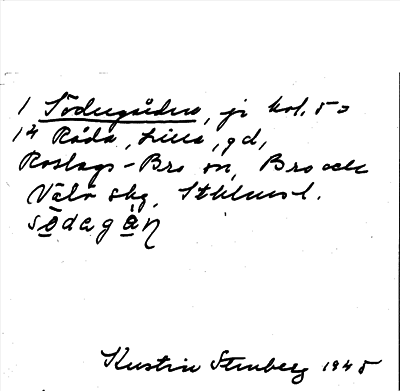 1 Södergården, jr kol. 5 =
1 4 Råda, Lilla, gd,
Roslags-Bro sn, Bro och
Vätö skg, Sthlms l.
sødagån
Kerstin Stenberg 1945